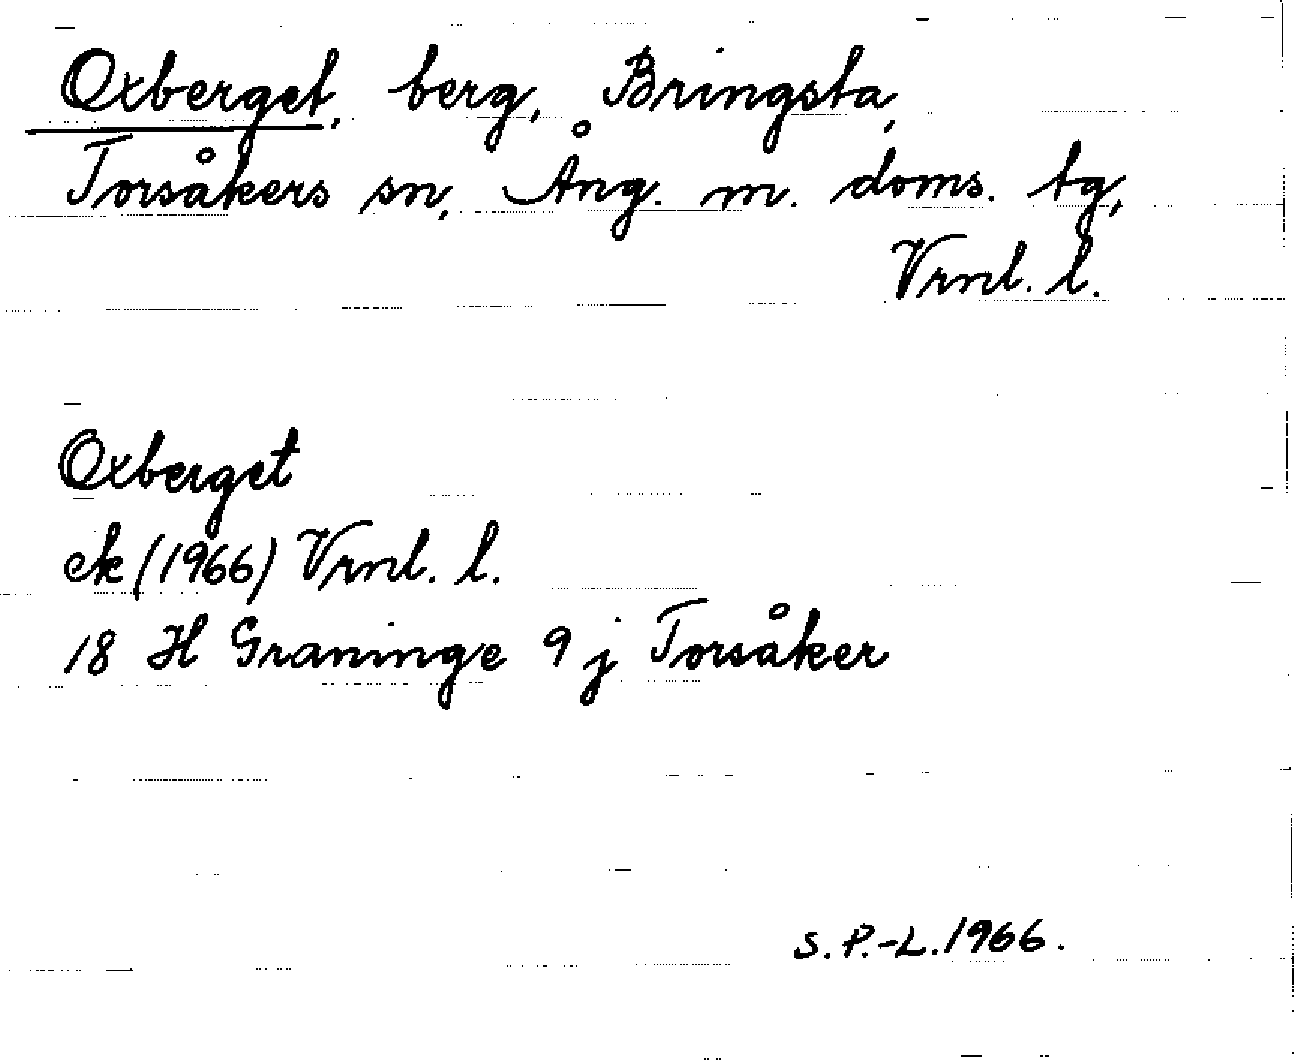 Oxberget, berg, Bringsta,
Torsåkers sn, Ång. m. doms. tg,
Vrnl. l.
Oxberget
ek (1966) Vrnl. l.
18 H Graninge 9 j Torsåker
S. P.-L. 1966.